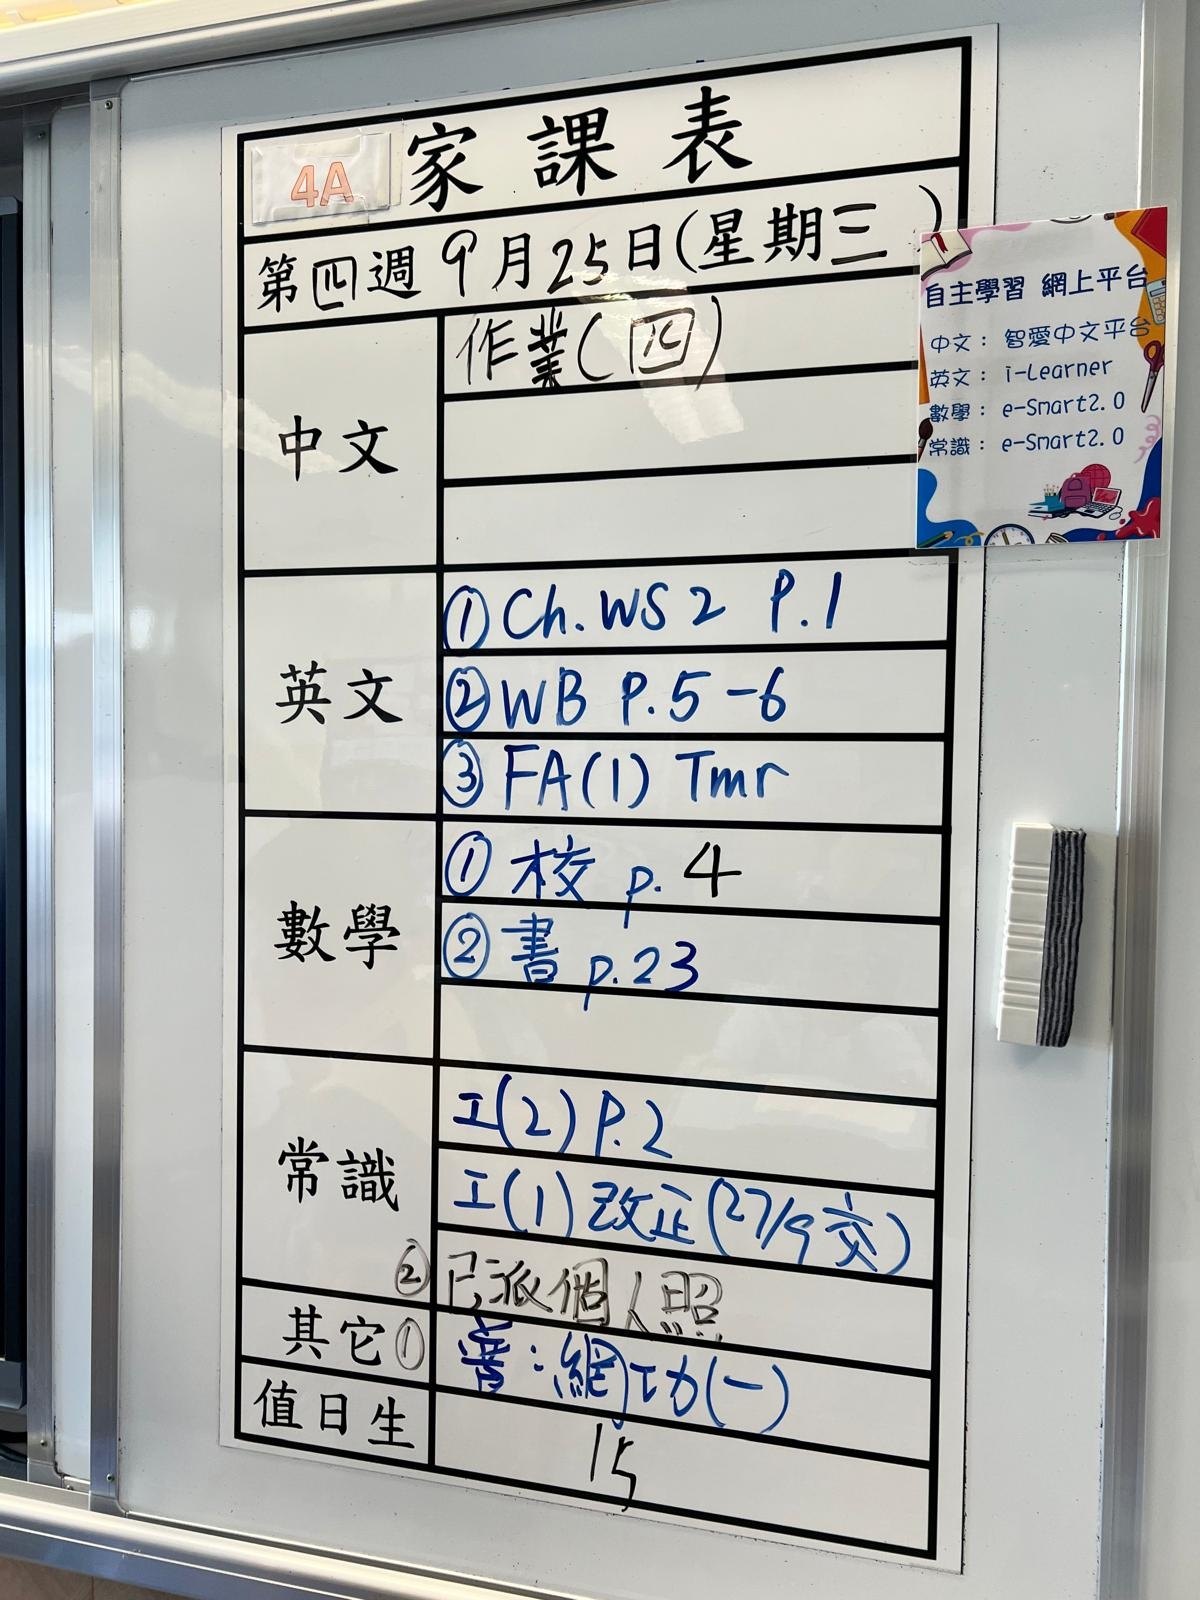 4A 家課表
第四週 9月25日(星期三)
中文
作業(四)
英文
① Ch. WS 2 P.1
② WB P.5-6
③ FA(1) Tmr
數學
① 校 p. 4
② 書 p.23
常識
工(2) P.2
工(1) 改正(27/9交)
② 已派個人照
其它 ① 普:網功(一)
值日生 15
自主學習 網上平台
中文: 智愛中文平台
英文: i-Learner
數學: e-Smart2.0
常識: e-Smart2.0